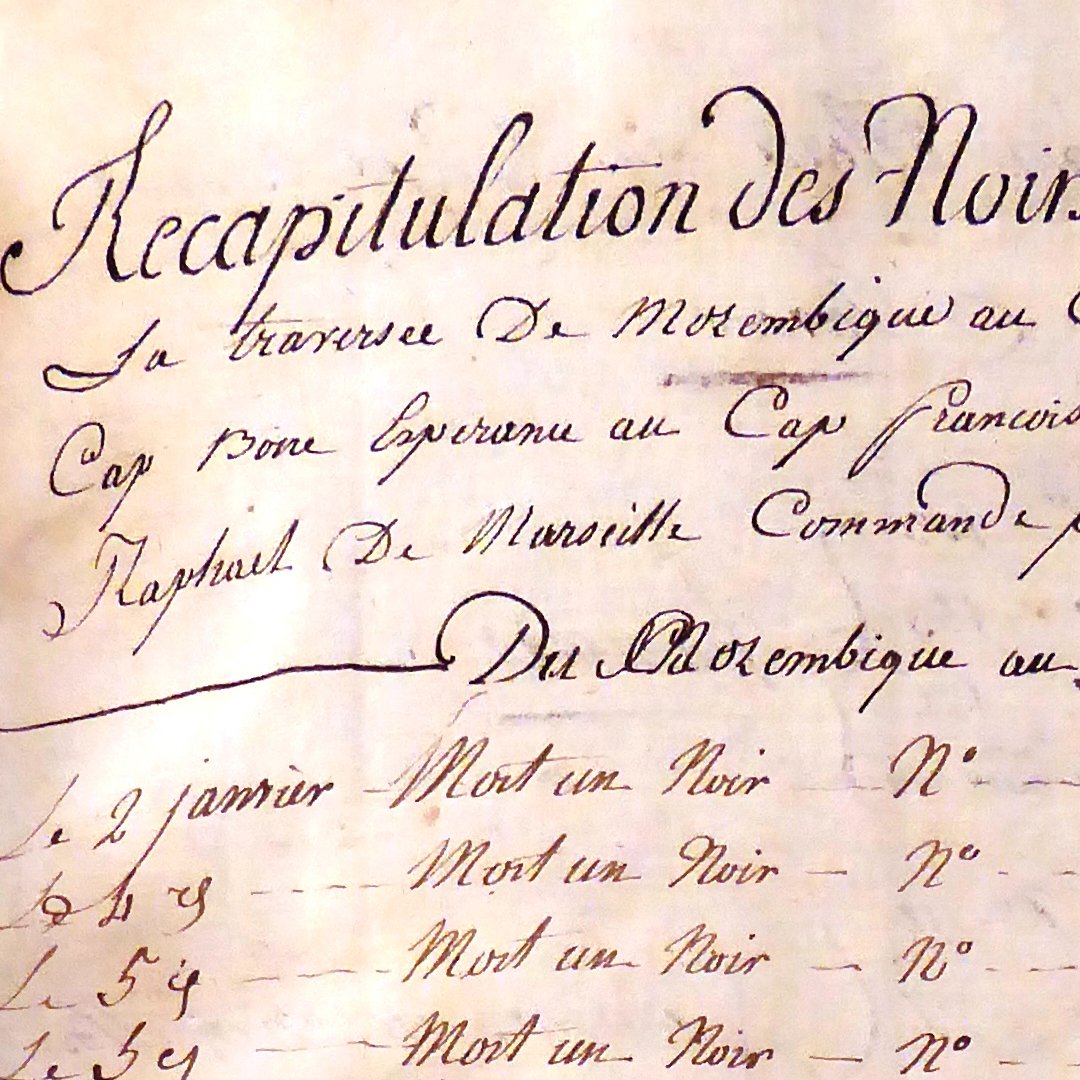 Recapitulation des Noirs
La traversee De Mozembique au
Cap Bone Esperance au Cap francois
Raphael De Marseille Commande p
Du Mozembique au
Le 2 janvier - Mort un Noir - N°
Le 4 - Mort un Noir - N°
Le 5 - Mort un Noir - N°
Le 5 - Mort un Noir - N°